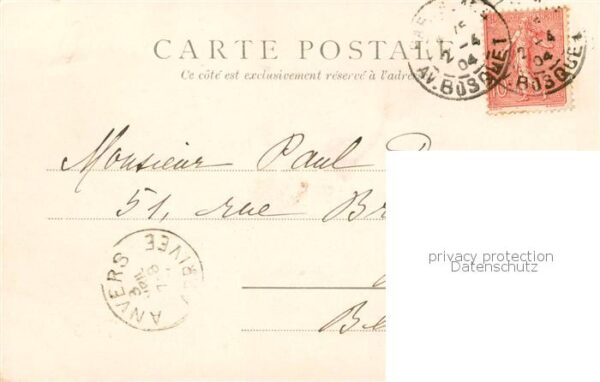 CARTE POSTALE
Ce côté est exclusivement réservé à l'adresse
AV. BOSQUET
2 - 4
04
AV. BOSQUET
2 4
04
Monsieur Paul
51, rue Br
Be
ANVERS
ARRIVÉE
privacy protection
Datenschutz